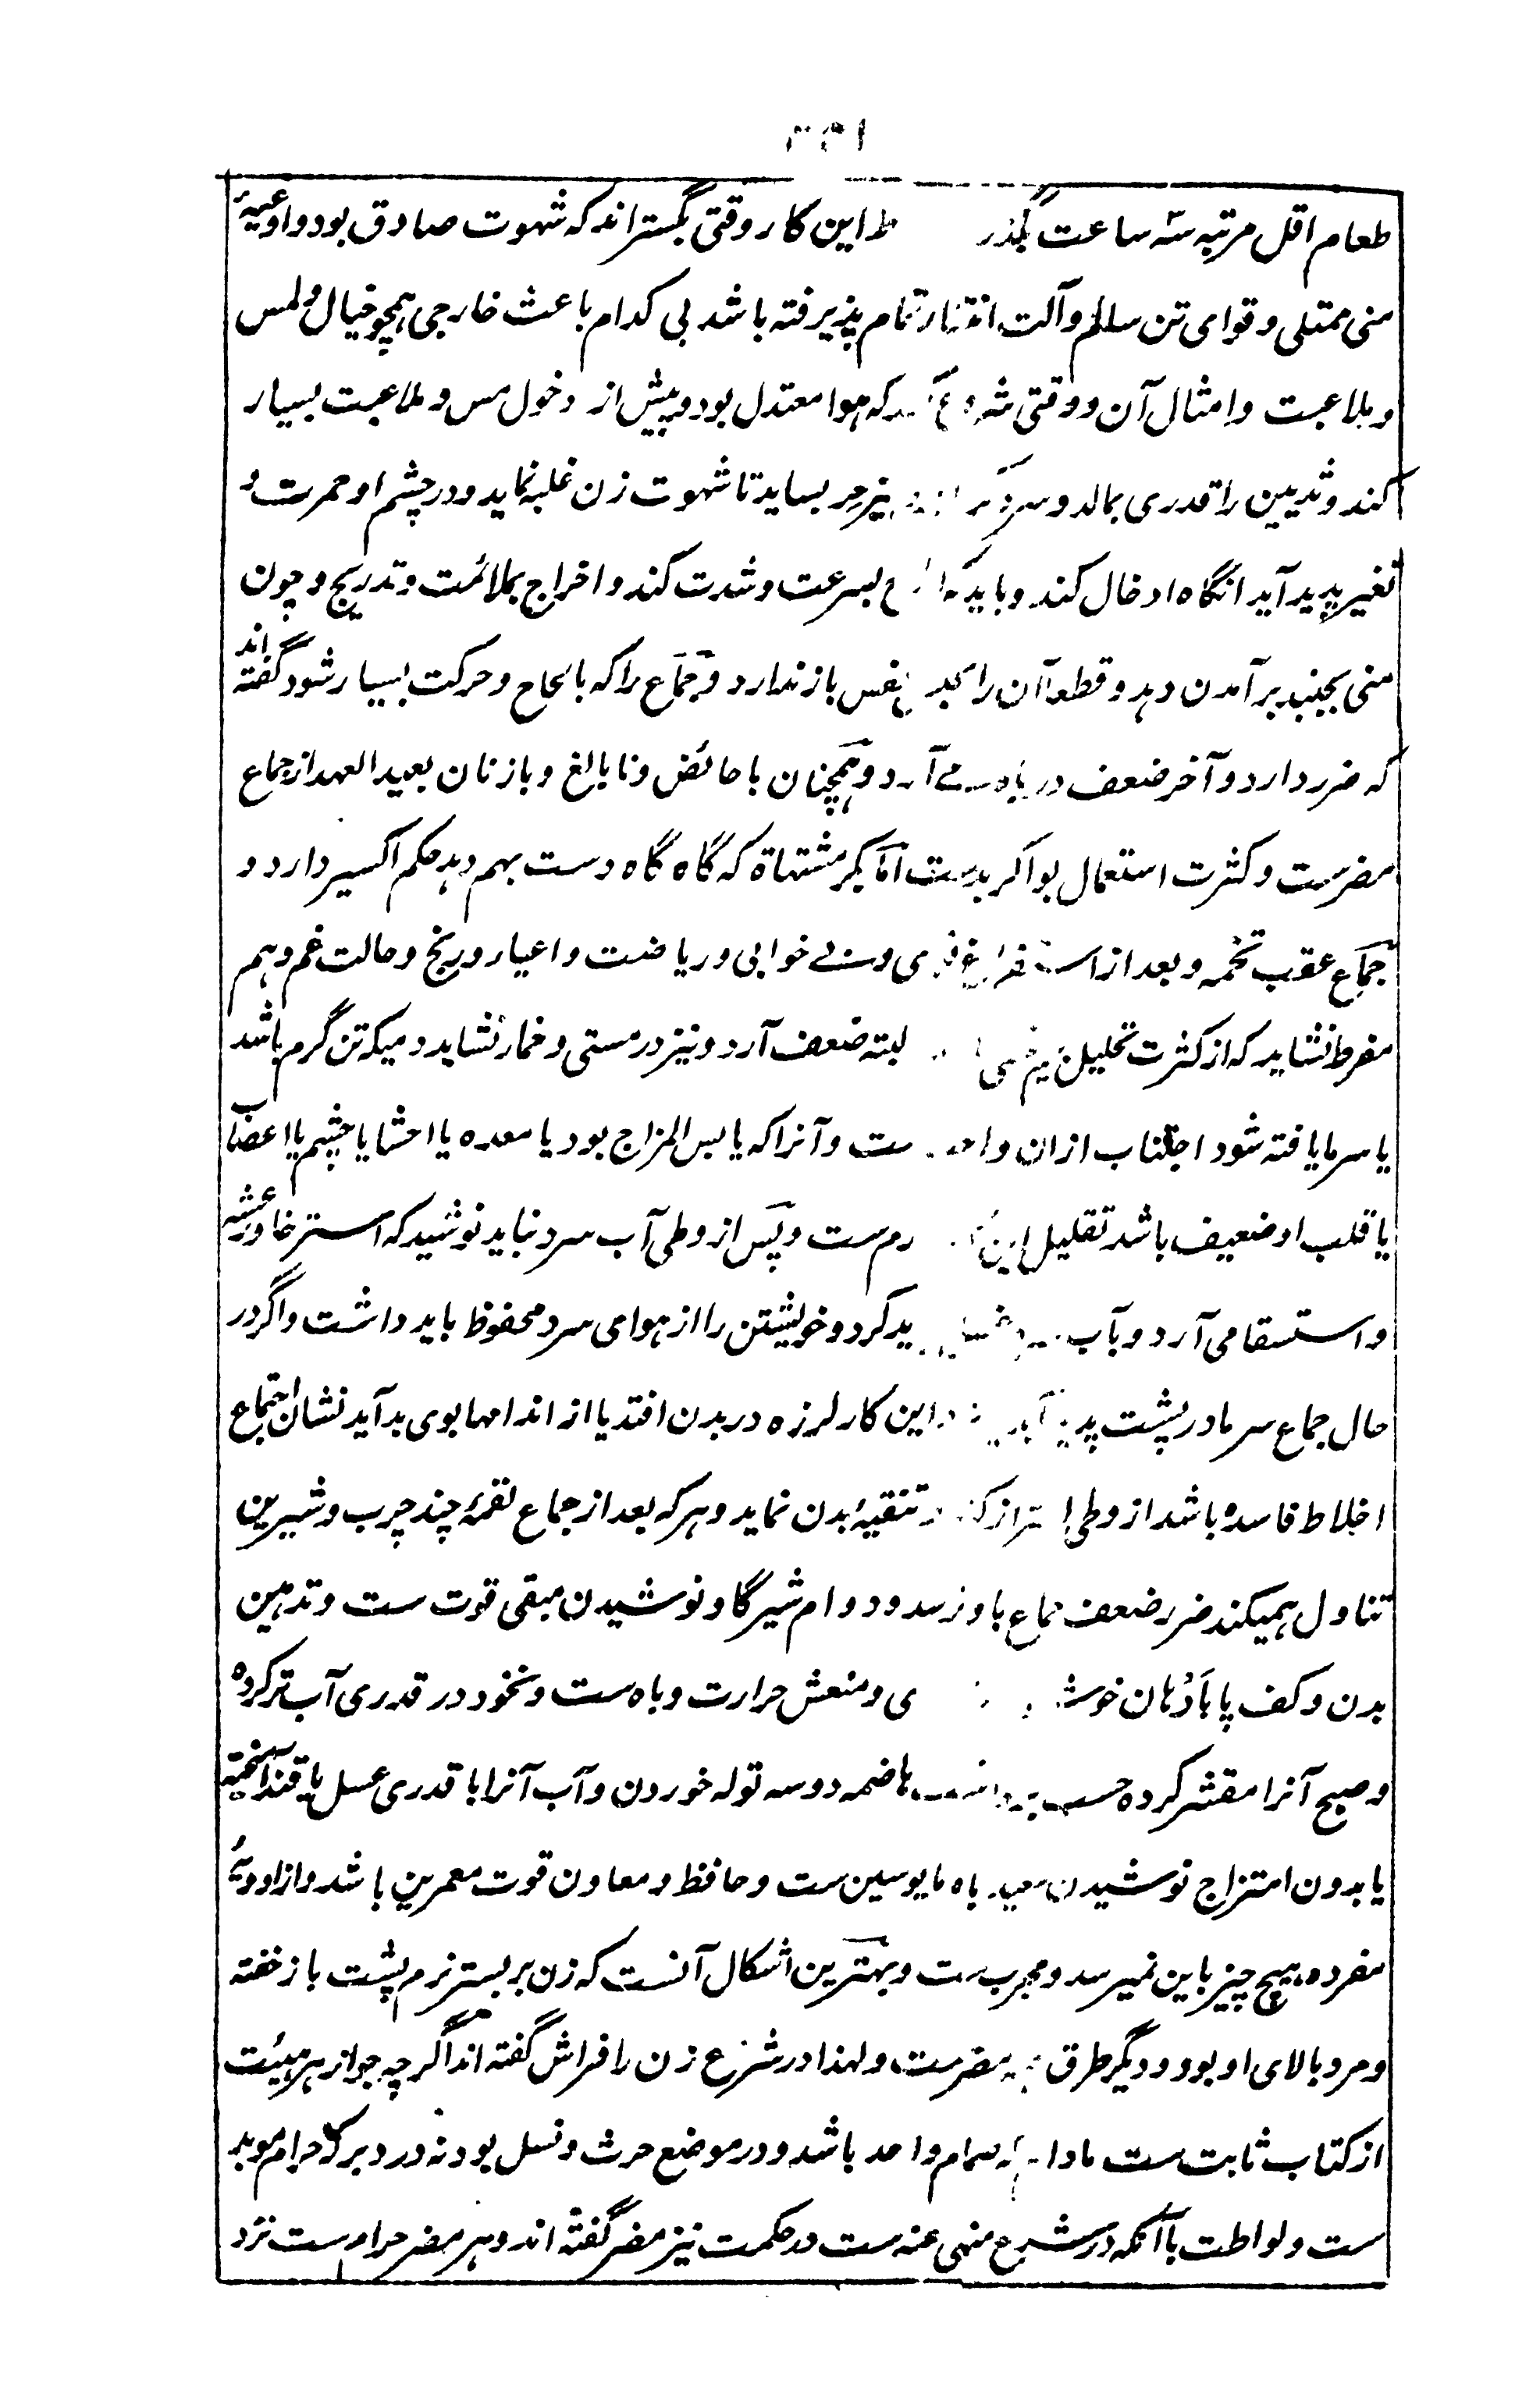 طعام اقل مرتبه سه ساعت بگذر این کار وقتی بگستراند که شهوت صادق بود و اوعیهٔ
منی ممتلی و قوای تن سالم و آلت انتشار تمام پذیرفته باشد بی کدام باعث خارجی همچو خیال و لمس
و ملاعبت و امثال آن و وقتی که هوا معتدل بود و پیش از دخول مس و ملاعبت بسیار
کند و ثدیین را قدری بمالد و بساید تا شهوت زن غلبه نماید و در چشم او حمرت و
تغیر پدید آید انگاه ادخال کند و باید که بسرعت و شدت کند و اخراج بملائمت و تدریج و چون
منی بجنبد برآمدن دهد و قطعا آن را نفس باز ندارد و جماع را که بالحاح و حرکت بسیار شود گفته اند
که ضرر دارد و آخر ضعف در باه می آرد و همچنان با حائض و نابالغ و با زنان بعید العهد از جماع
مضرست و کثرت استعمال بواکر بدست اما بکر مشتهاة که گاه گاه دست بهم دهد حکم اکسیر دارد و
جماع عقب تخمه و بعد از استفراغ قوی و بی خوابی و ریاضت و اعیار و رنج و حالت غم و هم
مفرط نشاید که از کثرت تحلیل لبته ضعف آرد و نیز در مستی و خمار نشاید و میکه تن گرم باشد
یا سرما یافته شود اجتناب ازان ست و آنرا که یابس المزاج بود یا معده یا احشا یا چشم یا اعصاب
یا قلب او ضعیف باشد تقلیل این ست و پس از وطی آب سرد نباید نوشید که استرخا و رعشه
و استسقا می آرد و بآب ید کرد و خویشتن را از هوای سرد محفوظ باید داشت و اگر در
حال جماع سرما در پشت پدید آید این کار لرزه در بدن افتد یا از اندامها بوی بد آید نشان اجتماع
اخلاط فاسده باشد از وطی احتراز کند و تنقیهٔ بدن نماید و هر که بعد از جماع لقمهٔ چند چرب و شیرین
تناول همیکند ضرر ضعف جماع باو نرسد و دوام شیر گاو نوشیدن مبقی قوت ست و تدهین
بدن و کف پا بادهان ی و منعش حرارت و باه ست و نخود در قدری آب تر کرده
و صبح آنرا مقشر کرده حسب هاضمه دو سه توله خوردن و آب آنرا با قدری عسل یا قند آمیخته
یا بدون امتزاج نوشیدن باه مایوسین ست و حافظ و معاون قوت معمرین باشد و از ادویهٔ
مفرده هیچ چیز باین نمیرسد و مجرب ست و بهترین اشکال آنست که زن بر بستر نرم پشت باز خفته
و مرد بالای او بود و دیگر طرق مضرست و لهذا در شرع زن را فراش گفته اند اگرچه جواز هر هیئت
از کتاب ثابت ست صمام واحد باشد و در موضع حرث و نسل بود نه در دبر که حرام موبد
ست و لواطت با آنکه در شرع منهی عنه ست در حکمت نیز مضر گفته اند و هر مضر حرام ست نزد